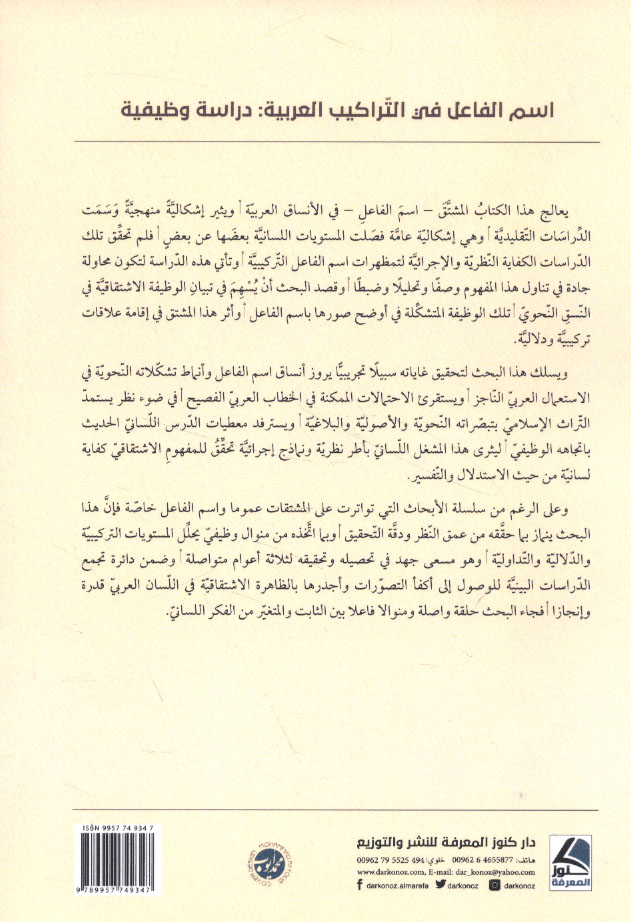 اسم الفاعل في التّراكيب العربية: دراسة وظيفية
يعالج هذا الكتابُ المشتَّقَ – اسمَ الفاعلِ – في الأنساق العربيّة أ ويثير إشكاليَّةً منهجيَّةً وَسَمَت
الدِّراسَات التَّقليديَّة أ وهي إشكاليّة عامَّة فصَلت المستويات اللسانيَّة بعضَها عن بعضٍ أ فلم تحقِّق تلك
الدراسات الكفاية النظريّة والإجرائيَّة لتمظهرات اسم الفاعل التَّركيبيَّة أ وتأتي هذه الدّراسة لتكون محاولة
جادة في تناول هذا المفهوم وصفًا وتحليلًا وضبطًا أ وقصد البحث أنْ يُسْهِمَ في تبيانِ الوظيفة الاشتقاقيَّة في
النَّسقِ النَّحويّ أ تلك الوظيفة المتشكِّلة في أوضح صورها باسم الفاعل أ وأثر هذا المشتق في إقامة علاقات
تركيبيَّة ودلاليَّة.
ويسلك هذا البحث لتحقيق غاياته سبيلًا تجريبيًّا يروز أنساق اسم الفاعل وأنماط تشكّلاته النَّحوية في
الاستعمال العربيّ النّاجز أ ويستقرئ الاحتمالات الممكنة في الخطاب العربيّ الفصيح أ في ضوء نظر يستمدّ
التّراث الإسلاميّ بتبصّراته النَّحوية والأصوليَّة والبلاغيَّة أ ويسترفد معطيات الدّرس اللّسانيّ الحديث
باتجاهه الوظيفيّ أ ليثرى هذا المشغل اللّسانيّ بأطر نظريّة ونماذج إجرائيَّة تحقِّقُ للمفهومِ الاشتقاقيّ كفاية
لسانية من حيث الاستدلال والتَّفسير.
وعلى الرغم من سلسلة الأبحاث التي تواترت على المشتقات عموما واسم الفاعل خاصّة فإنَّ هذا
البحث ينماز بما حقَّقه من عمق النَّظر ودقَّة التحقيق أ وبما اتَّخذه من منوال وظيفيّ يحلِّل المستويات التركيبيّة
والدّلاليّة والتّداوليّة أ وهو مسعى جهد في تحصيله وتحقيقه لثلاثة أعوام متواصلة أ وضمن دائرة تجمع
الدّراسات البينيَّة للوصول إلى أكفأ التصوّرات وأجدرها بالظاهرة الاشتقاقيّة في اللّسان العربيّ قدرة
وإنجازا أ فجاء البحث حلقة واصلة ومنوالا فاعلا بين الثابت والمتغيّر من الفكر اللسانيّ.
ISBN 9957 74 934 7
9 789957 749347
دار كنوز المعرفة للنشر والتوزيع
هاتف: 00962 6 4655877 خلوي: 00962 79 5525 494
www.darkonoz.com, E-mail: dar_konoz@yahoo.com
darkonoz.almarefa darkonoz darkonoz
كنوز
المعرفة